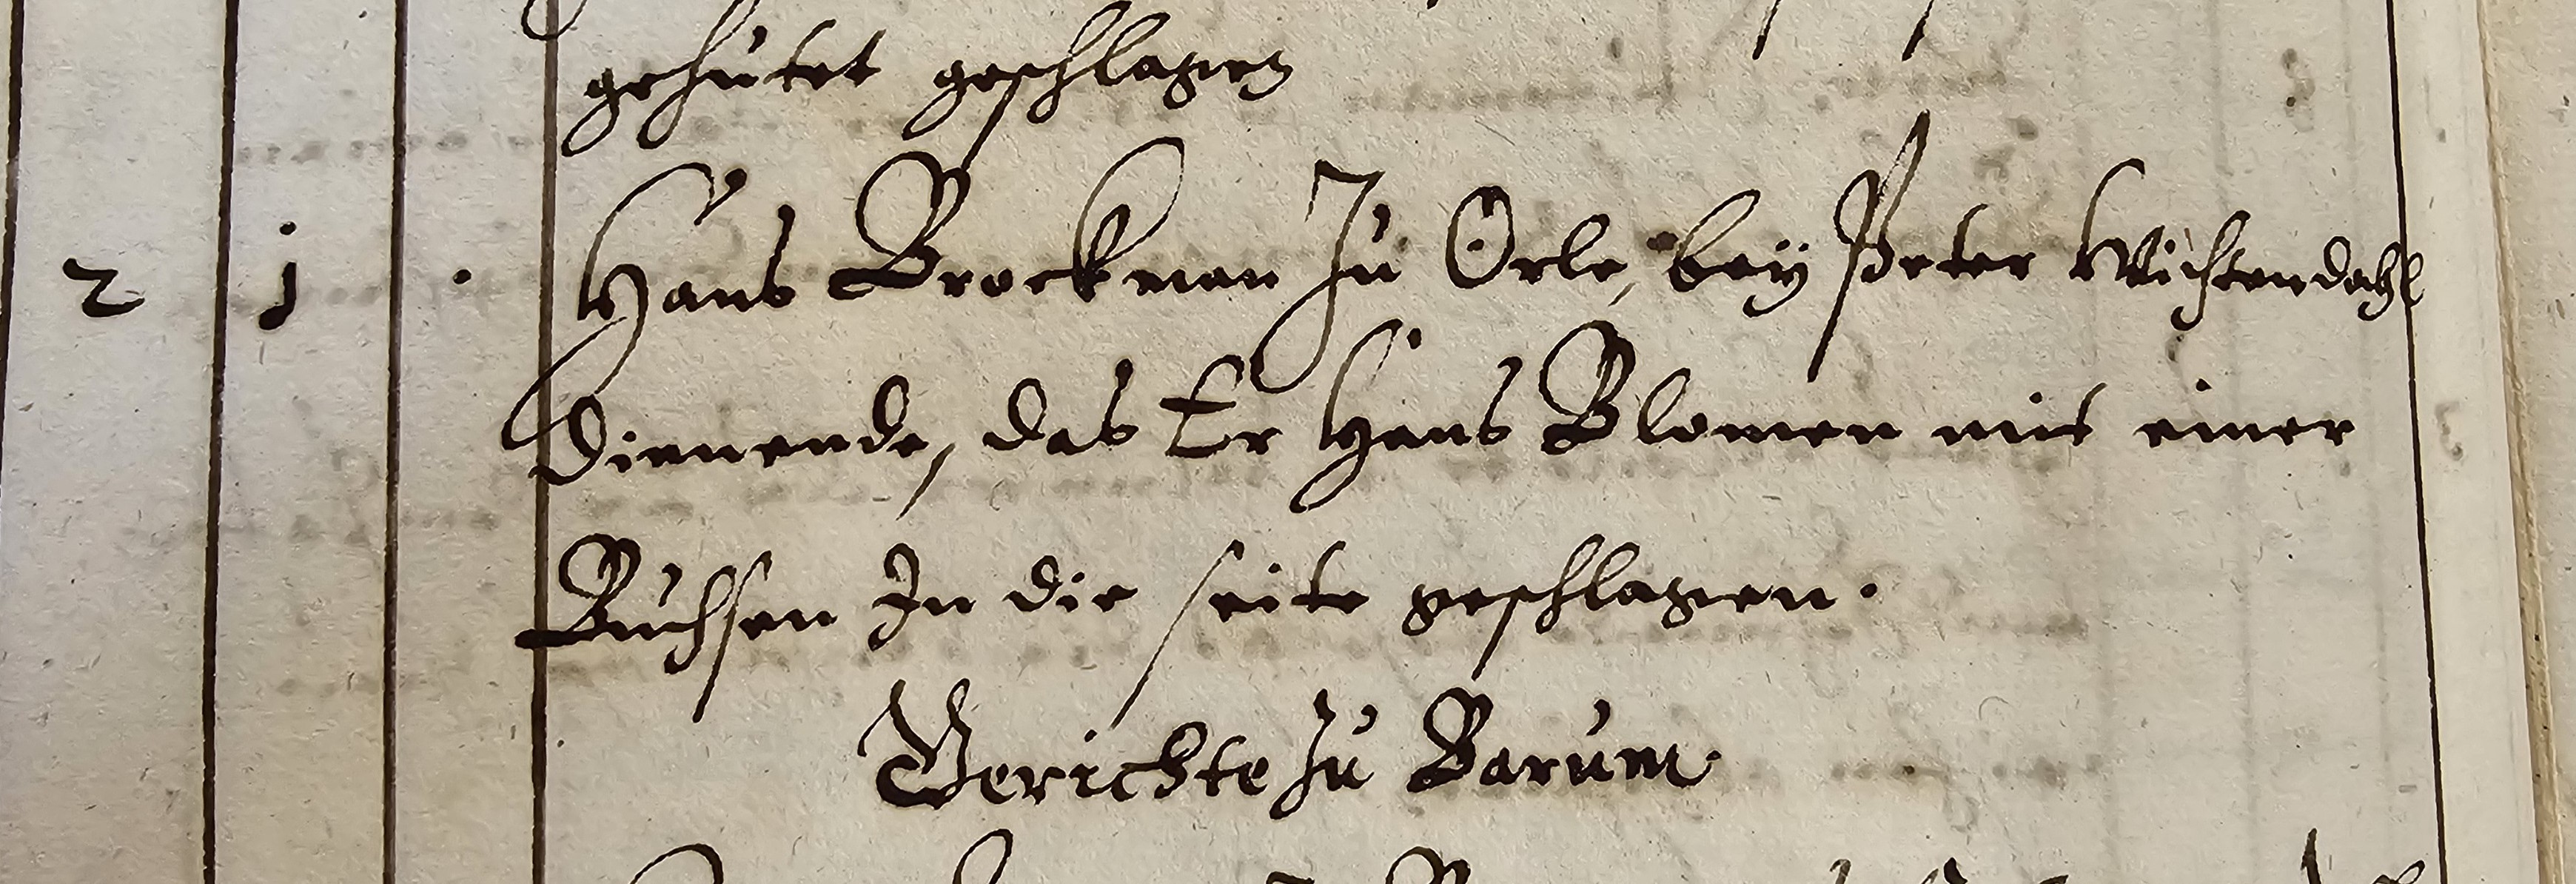 gehütet geschlagen
2 j . Hans Brockman Zu Orle, bey Peter Wichtendahl
Dienende, das Er Hans Blomen mit einer
Buchsen In die seite geschlagen.
Gerichte Zu Barum.